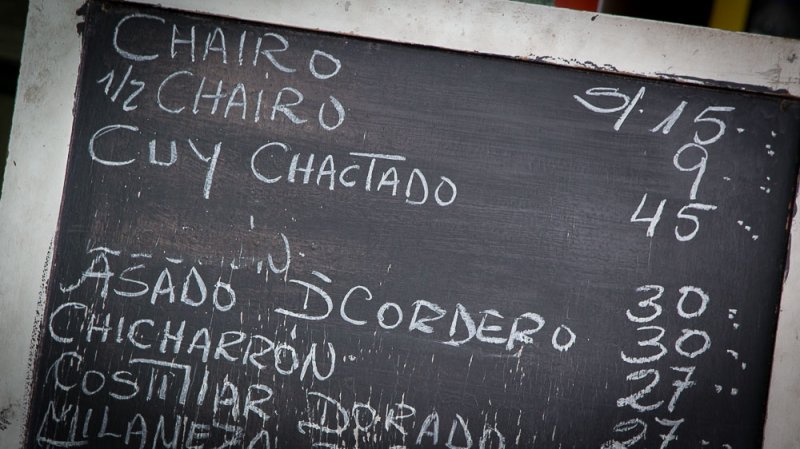 CHAIRO S/. 15
1/2 CHAIRO 9
CUY CHACTADO 45
ASADO D CORDERO 30
CHICHARRÓN 30
COSTILLAR DORADO 27
MILANEZA 27